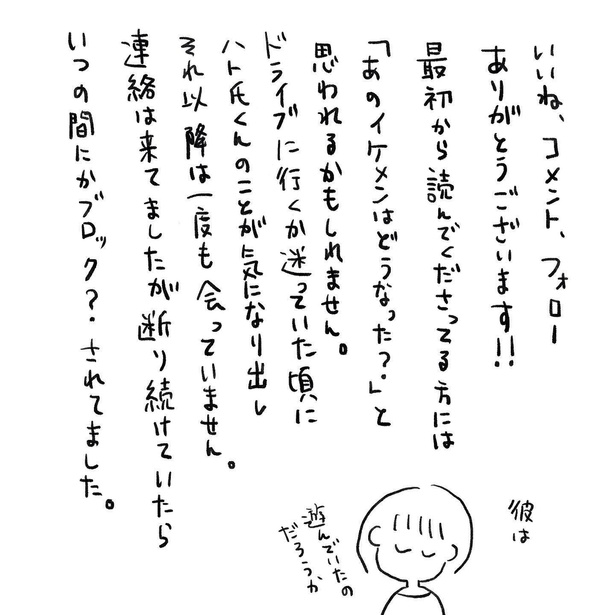 いいね、コメント、フォロー
ありがとうございます!!
最初から読んでくださってる方には
「あのイケメンはどうなった?」と
思われるかもしれません。
ドライブに行くか迷っていた頃に
ハト氏くんのことが気になり出し
それ以降は一度も会っていません。
連絡は来てましたが断り続けていたら
いつの間にかブロック?されてました。
彼は
遊んでいたの
だろうか